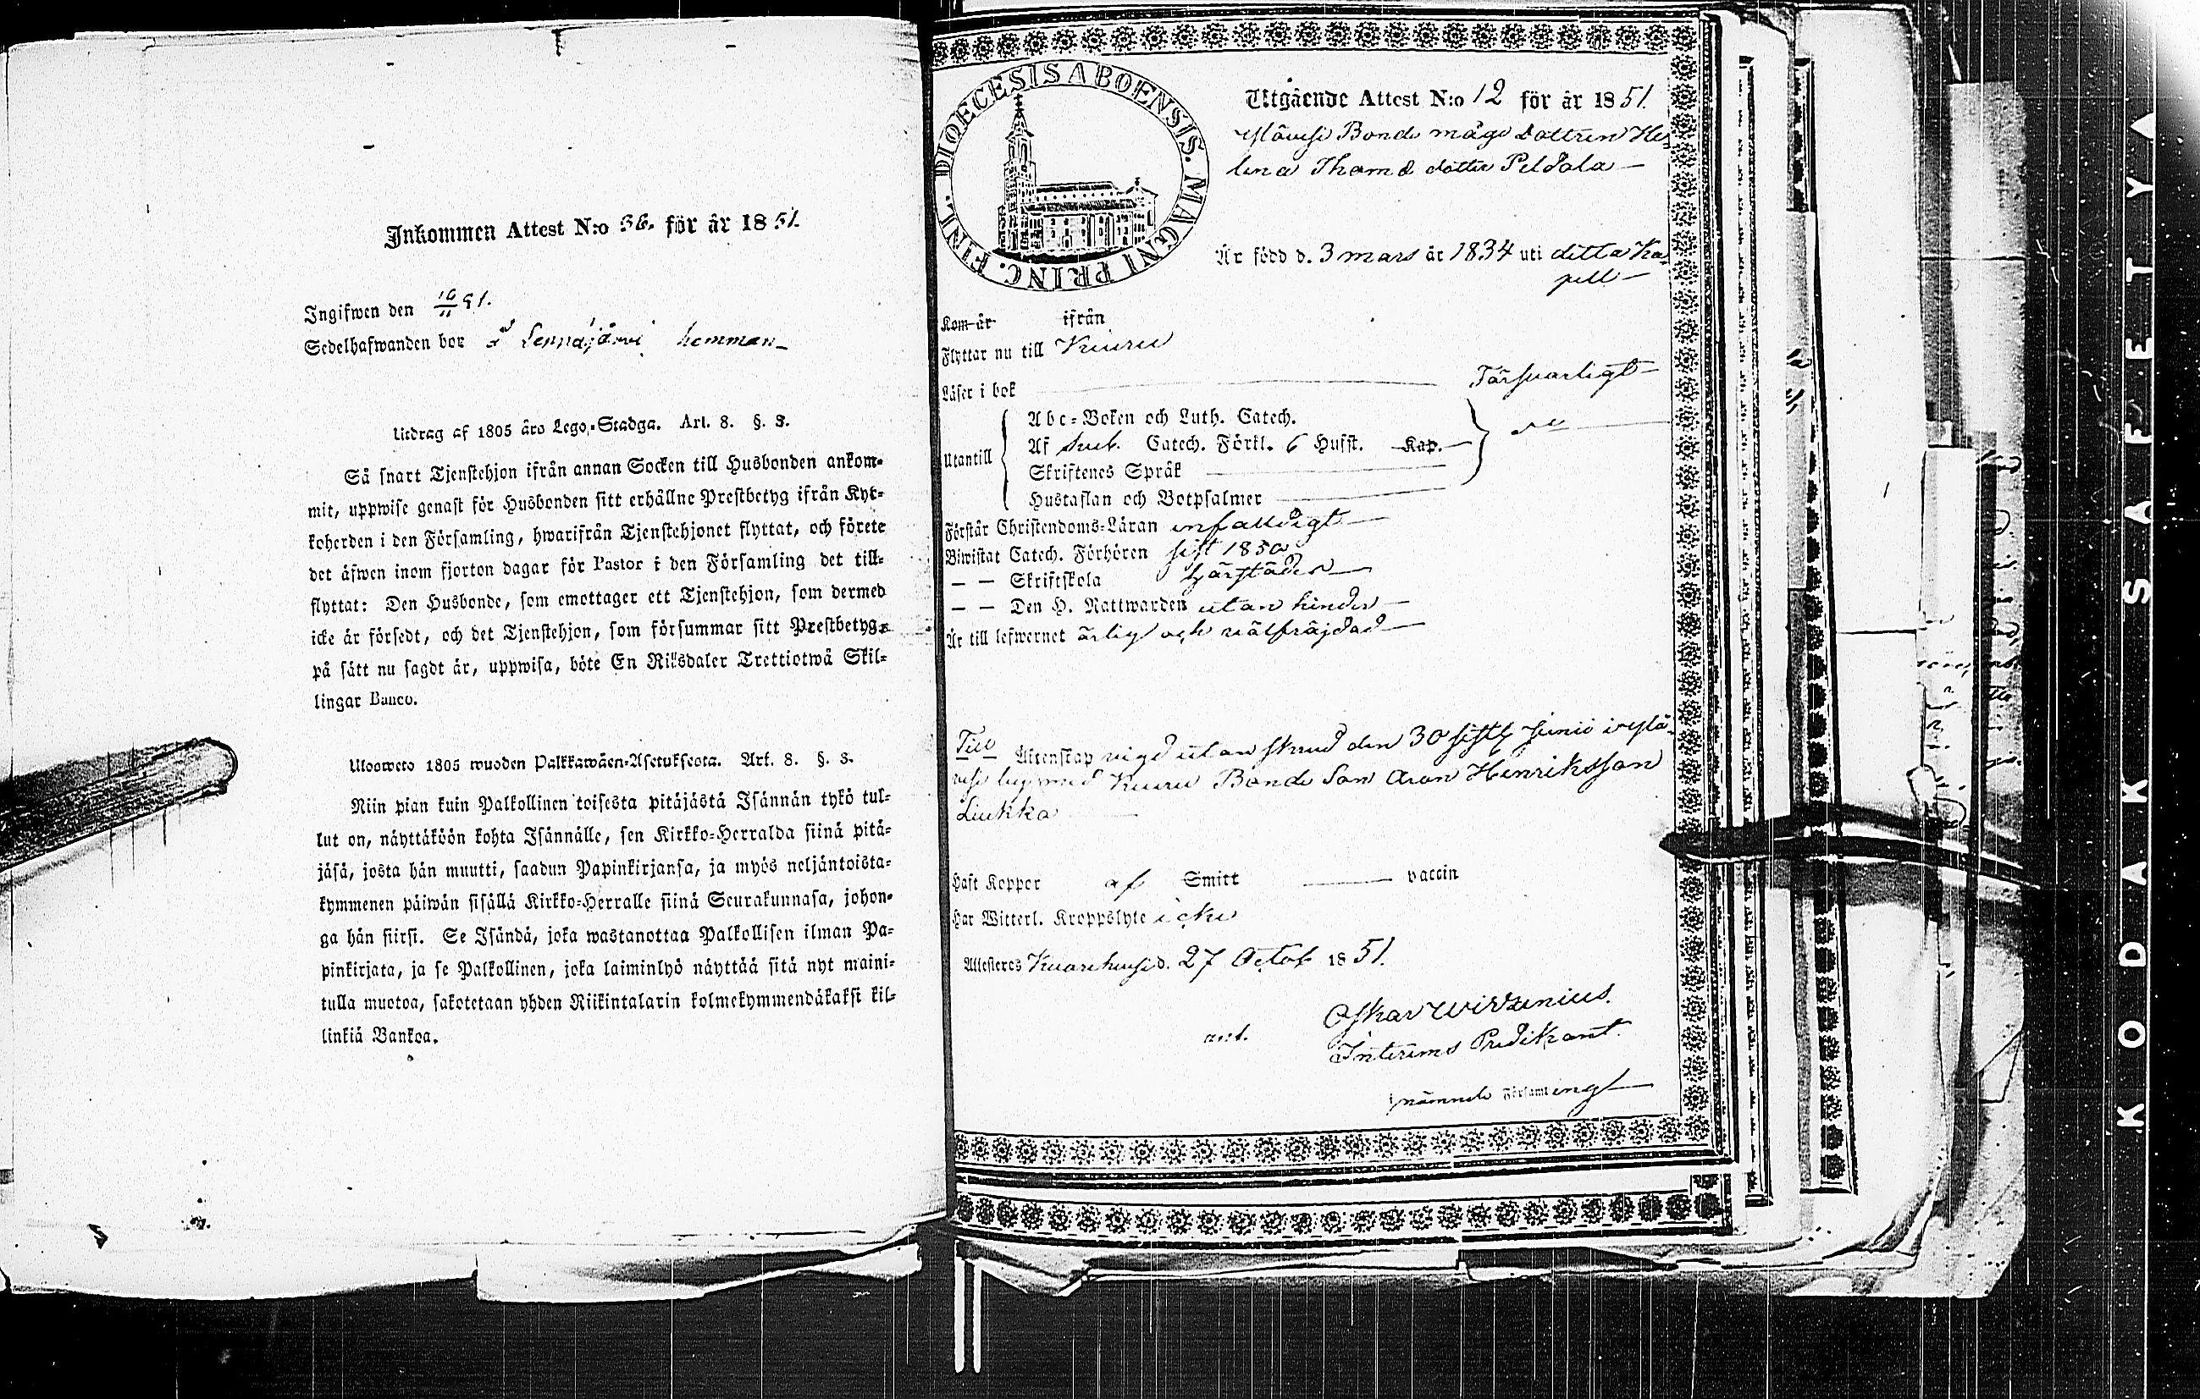 Inkommen Attest N:o 36. för år 1851.
Ingifwen den 16/11 51.
Sedelhafwanden bor å Sennäjärvi hemman
Utdrag af 1805 års Lego-Stadga. Art. 8. §. 3.
Så snart Tjenstehjon ifrån annan Socken till Husbonden ankom-
mit, uppwise genast för Husbonden sitt erhållne Prestbetyg ifrån Kyr-
koherden i den Församling, hwarifrån Tjenstehjonet flyttat, och förete
det äfwen inom fjorton dagar för Pastor i den Församling det till-
flyttat: Den Husbonde, som emottager ett Tjenstehjon, som dermed
icke är försedt, och det Tjenstehjon, som försummar sitt Prestbetyg,
på sätt nu sagdt är, uppwisa, böte En Riksdaler Trettiotwå Skil-
lingar Banco.
Ulosweto 1805 wuoden Palkkawäen-Asetuksesta. Art. 8. §. 3.
Niin pian kuin Palkollinen toisesta pitäjästä Isännän tykö tul-
lut on, näyttäköön kohta Isännälle, sen Kirkko-Herralda siinä pitä-
jäsä, josta hän muutti, saadun Papinkirjansa, ja myös neljäntoista-
kymmenen päiwän sisällä Kirkko-Herralle siinä Seurakunnasa, johon-
ga hän siirsi. Se Isändä, joka wastanottaa Palkollisen ilman Pa-
pinkirjata, ja se Palkollinen, joka laiminlyö näyttää sitä nyt maini-
tulla muotoa, sakotetaan yhden Riikintalarin kolmekymmendäkaksi kil-
linkiä Bankoa.
DIOECESIS ABOENSIS. MAGNI PRINC. FINL.
Utgående Attest N:o 12 för år 1851.
Ylävesi Bonde mågs Dottren He-
lena Thoms dotter Peldola
Är född d. 3 mars år 1834 uti detta Ka-
pell
Kom år ifrån
Flyttar nu till Kuru
Läser i bok Försvarligt
Utantill
Abc-Boken och Luth. Catech.
Af Sveb. Catech. Förkl. 6 Hufst. Kap.
Skriftenes Språk
Hustaflan och Botpsalmer
Förstår Christendoms-Läran enfaldigt
Biwistat Catech. Förhören sist 1850
— — Skriftskola
— — Den H. Nattwarden utan hinder
Är till lefwernet ärlig och välfräjdad
Till Äktenskap vigd utan skrud den 30 sistl. Junii i Ylä-
vesi by med Kuru Bonde Son Aron Henriksson
Liukka
Haft Koppor af Smitt vaccin
Har Witterl. Kroppslyte icke
Attesteres d. 27 Octob 1851.
Oskar Wirzenius.
Interims Predikant.
nämnde Församling
KODAK SAFETY A